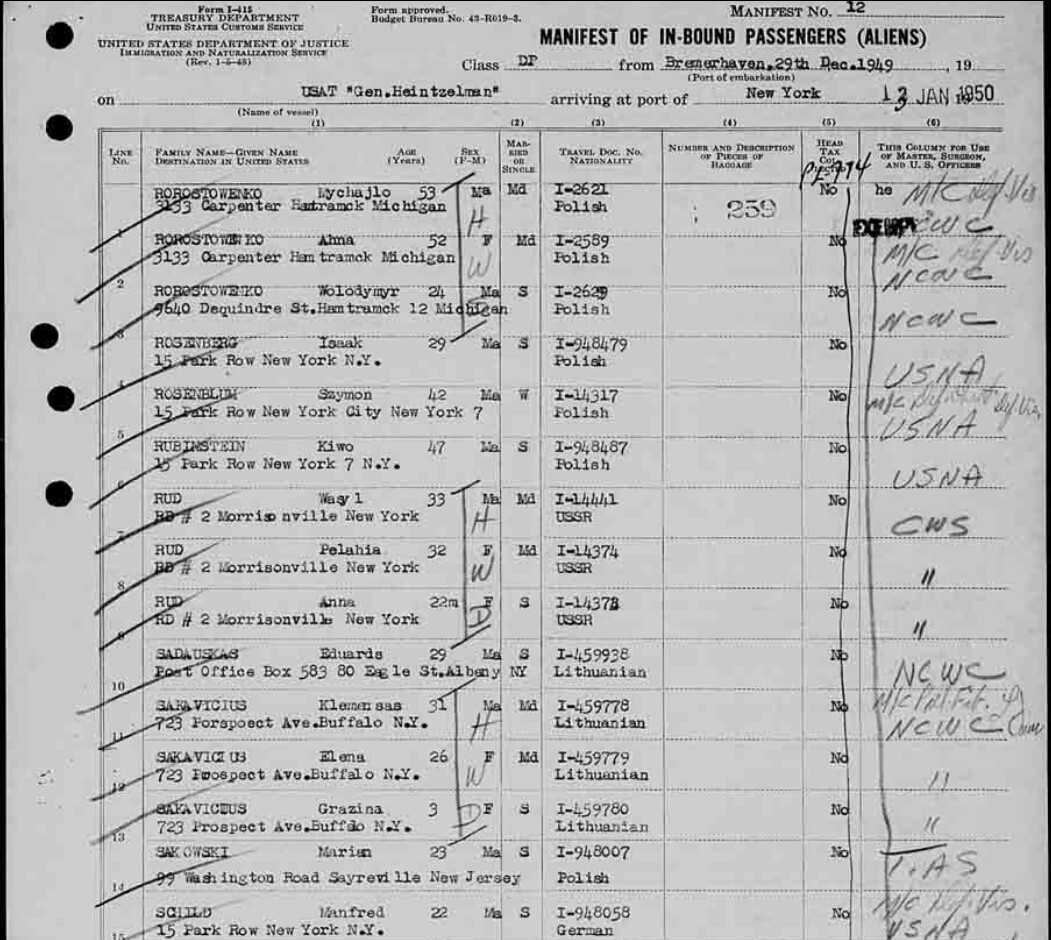 Form I-415
TREASURY DEPARTMENT
UNITED STATES CUSTOMS SERVICE
UNITED STATES DEPARTMENT OF JUSTICE
IMMIGRATION AND NATURALIZATION SERVICE
(Rev. 1-5-48)
Form approved.
Budget Bureau No. 43-R019-3.
MANIFEST NO. 12
MANIFEST OF IN-BOUND PASSENGERS (ALIENS)
Class DP from Bremerhaven,29th Dec.1949, 19
(Port of embarkation)
on USAT "Gen.Heintzelman" arriving at port of New York 13 JAN 1950
(Name of vessel)
(1) (2) (3) (4) (5) (6)
LINE No. FAMILY NAME—GIVEN NAME AGE SEX MARRIED OR SINGLE TRAVEL DOC. NO. NUMBER AND DESCRIPTION HEAD TAX THIS COLUMN FOR USE
DESTINATION IN UNITED STATES (Years) (F-M) NATIONALITY OF PIECES OF BAGGAGE OF MASTER, SURGEON, AND U. S. OFFICERS
ROROSTOWENKO Mychajlo 53 Ma Md I-2621 No he M/C Def. Vis
3133 Carpenter Hamtramck Michigan H Polish 259 EXEMPT NCWC
1
ROROSTOWENKO Anna 52 F Md I-2589 No M/C Def Vis
3133 Carpenter Hamtramck Michigan W Polish NCWC
2
ROROSTOWENKO Wolodymyr 24 Ma S I-2629 No
9640 Dequindre St.Hamtramck 12 Michigan Polish NCWC
3
ROSENBERG Isaak 29 Ma S I-948479 No
15 Park Row New York N.Y. Polish USNA
4
ROSENBLUM Szymon 42 Ma W I-14317 No M/C Def Vis
15 Park Row New York City New York 7 Polish USNA
5
RUBINSTEIN Kiwo 47 Ma S I-948487 No
15 Park Row New York 7 N.Y. Polish USNA
6
RUD Wasyl 33 Ma Md I-14441 No
RD # 2 Morrisonville New York H USSR CWS
7
RUD Pelahia 32 F Md I-14374 No
RD # 2 Morrisonville New York W USSR "
8
RUD Anna 22m F S I-14373 No
RD # 2 Morrisonville New York D USSR "
9
SADAUSKAS Eduards 29 Ma S I-459938 No
Post Office Box 583 80 Eagle St.Albany NY Lithuanian NCWC
10
SAKAVICIUS Klemensas 31 Ma Md I-459778 No M/C
723 Porspoect Ave.Buffalo N.Y. H Lithuanian NCWC
11
SAKAVICIUS Elena 26 F Md I-459779 No
723 Prospect Ave.Buffalo N.Y. W Lithuanian "
12
SAKAVICIUS Grazina 3 D F S I-459780 No
723 Prospect Ave.Buffalo N.Y. Lithuanian "
13
SAKOWSKI Marian 23 Ma S I-948007 No
99 Washington Road Sayreville New Jersey Polish
14
SCHILD Manfred 22 Ma S I-948058 No M/C Def. Vis.
15 Park Row New York N.Y. German USNA
15